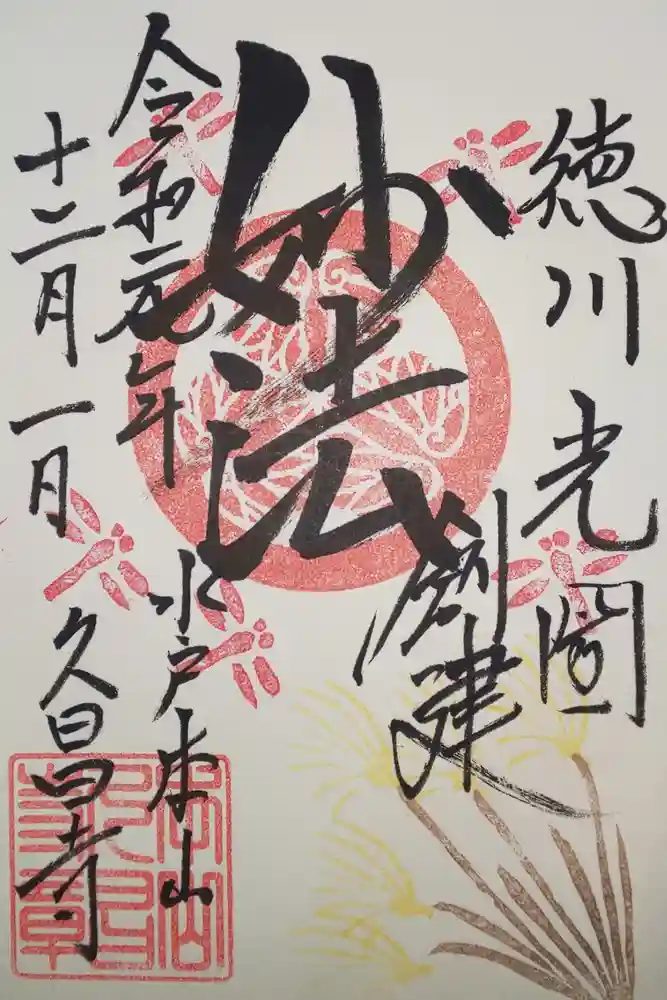 徳川光圀
創建
妙法
水戸本山
令和元年
十二月一日
久昌寺